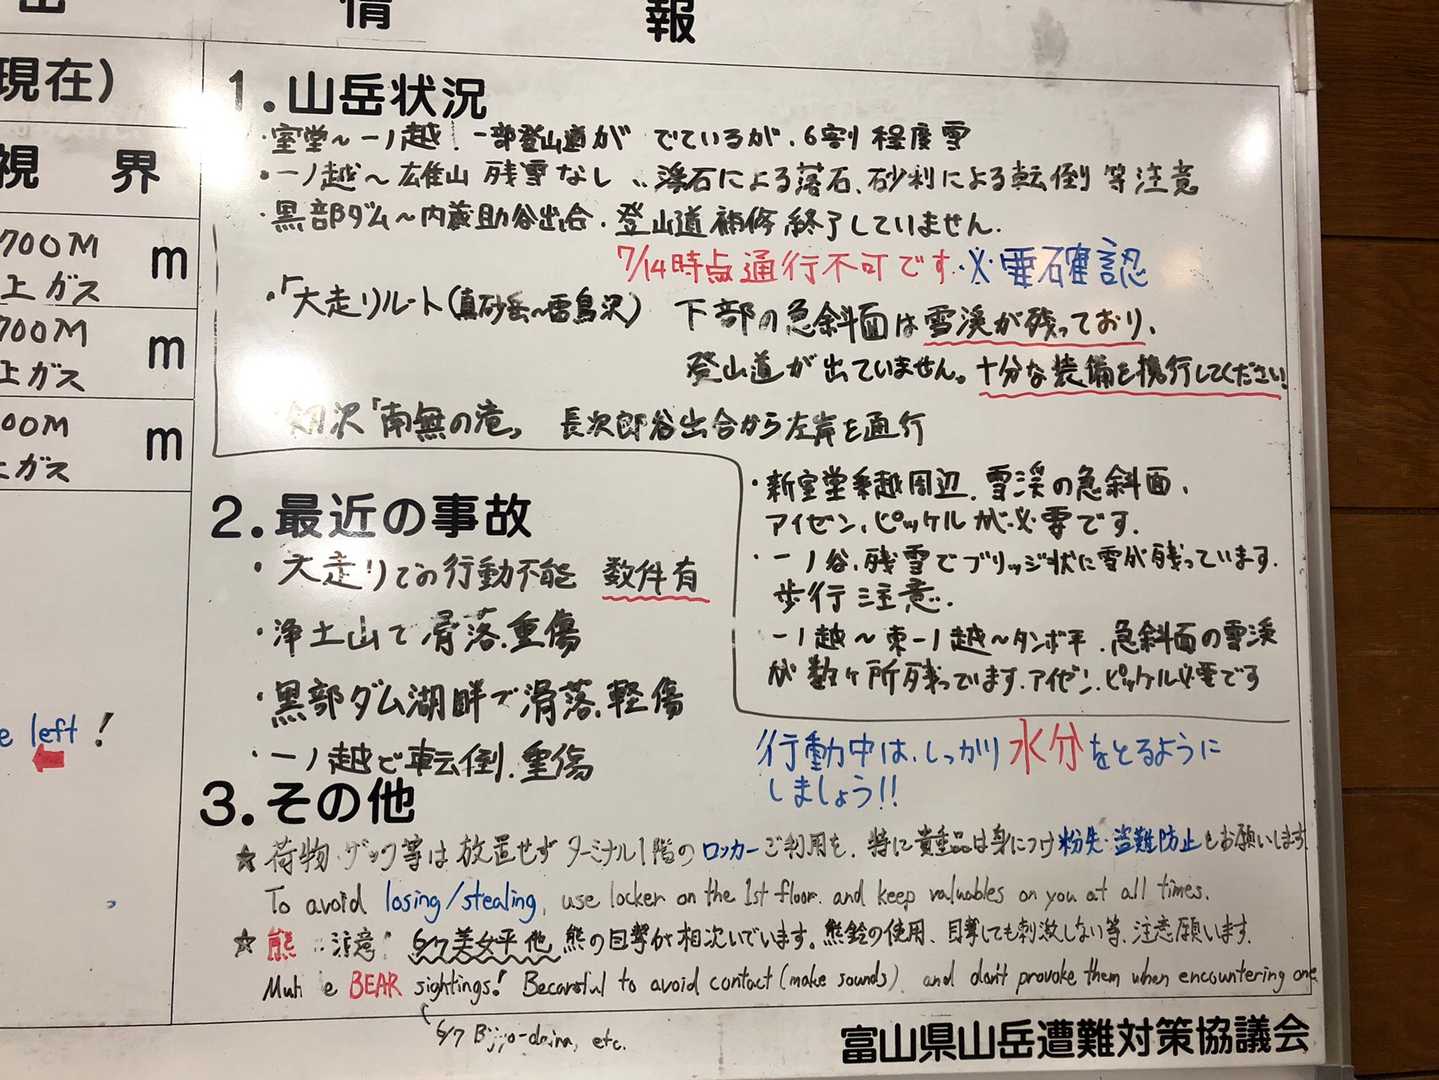 情 報
現在）
視 界
700M
上ガス m
700M
上ガス m
00M
上ガス m
e left！
1．山岳状況
・室堂～一ノ越！一部登山道が でているが、6割 程度雪
・一ノ越～雄山 残雪なし 浮石による落石、砂利による転倒 等注意
・黒部ダム～内蔵助谷出合．登山道補修終了していません．
7/14時点通行不可です・※要確認
・「大走りルート（真砂岳～雷鳥沢） 下部の急斜面は雪渓が残っており、
登山道が出ていません。十分な装備を携行してください！
沢「南無の滝」 長次郎谷出合から左岸を通行
・新室堂乗越周辺、雪渓の急斜面、
アイゼン、ピッケルが必要です．
・一ノ谷、残雪でブリッジ状に雪が残っています．
歩行注意．
一ノ越～東一ノ越～タンボ平．急斜面の雪渓
が数ヶ所残っています．アイゼン、ピッケル必要です
2．最近の事故
・大走りでの行動不能 数件有
・浄土山で滑落、重傷
・黒部ダム湖畔で滑落、軽傷
・一ノ越で転倒．重傷
行動中は、しっかり水分をとるように
しましょう!!
3．その他
☆荷物・ザック等は放置せずターミナル1階のロッカーご利用を、特に貴重品は身につけ紛失・盗難防止をお願いします
To avoid losing/stealing, use locker on the 1st floor. and keep valuables on you at all times.
☆熊 注意！ 6/7美女平 他 熊の目撃が相次いでいます。熊鈴の使用、目撃しても刺激しない等、注意願います．
e BEAR sightings! Becareful to avoid contact (make sounds), and don't provoke them when encountering one
6/7 Bijyo-daira, etc.
富山県山岳遭難対策協議会